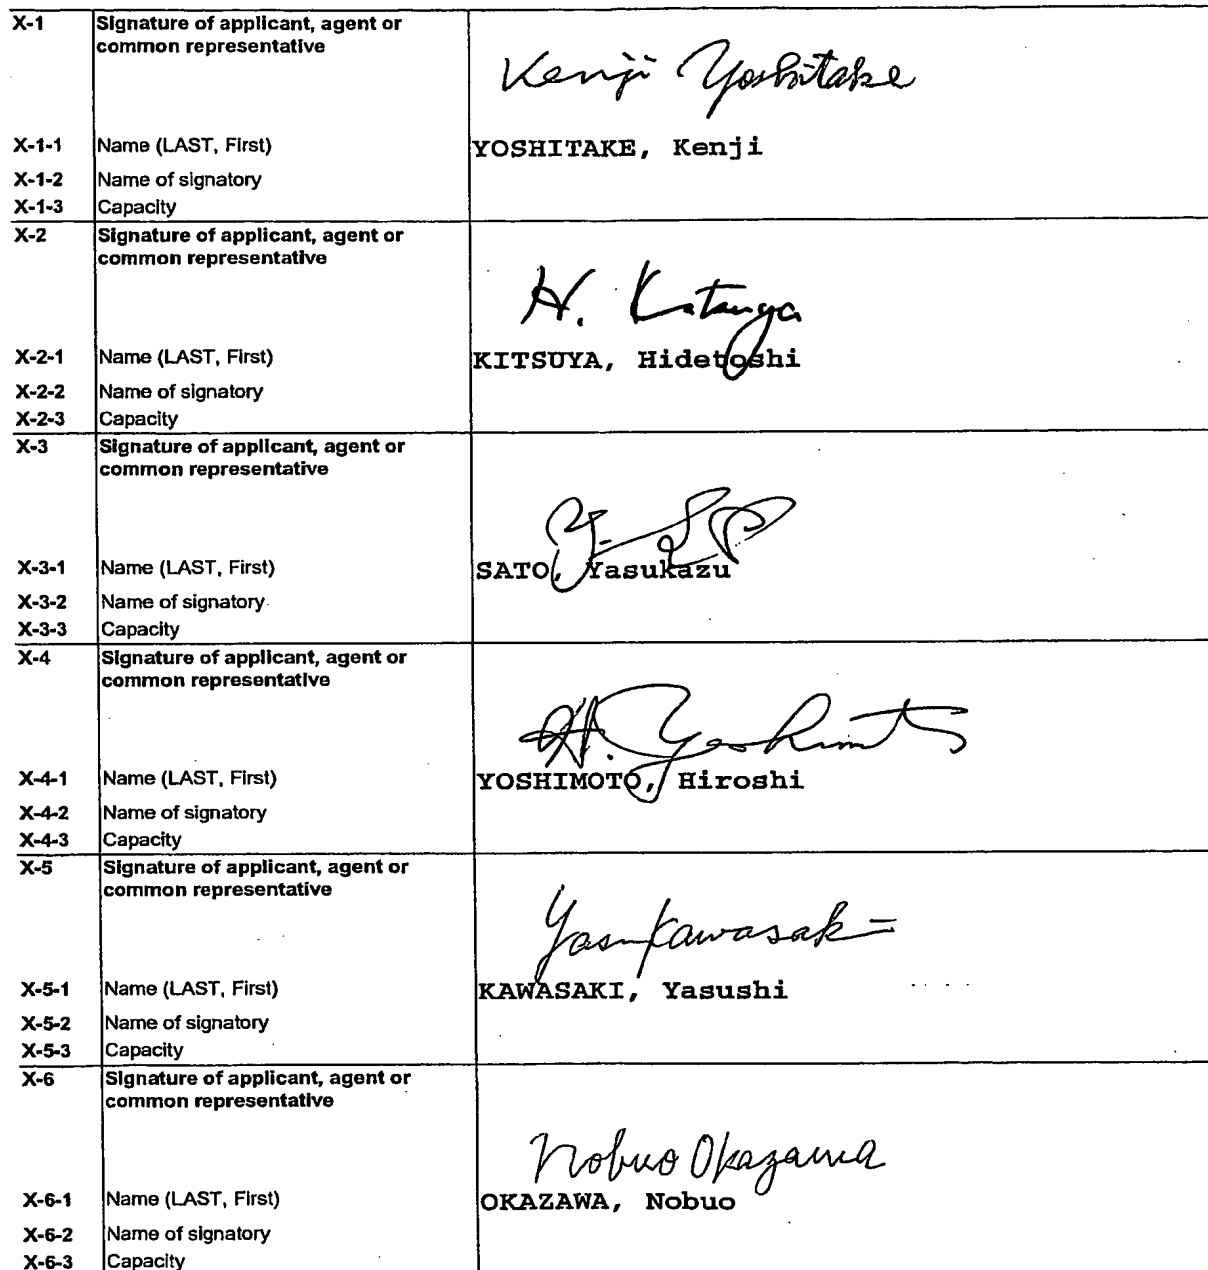 X-1 Signature of applicant, agent or
common representative
Kenji Yoshitake
X-1-1 Name (LAST, First) YOSHITAKE, Kenji
X-1-2 Name of signatory
X-1-3 Capacity
X-2 Signature of applicant, agent or
common representative
H. Kitsuya
X-2-1 Name (LAST, First) KITSUYA, Hidetoshi
X-2-2 Name of signatory
X-2-3 Capacity
X-3 Signature of applicant, agent or
common representative
X-3-1 Name (LAST, First) SATO, Yasukazu
X-3-2 Name of signatory
X-3-3 Capacity
X-4 Signature of applicant, agent or
common representative
H. Yoshimoto
X-4-1 Name (LAST, First) YOSHIMOTO, Hiroshi
X-4-2 Name of signatory
X-4-3 Capacity
X-5 Signature of applicant, agent or
common representative
Yasu Kawasaki
X-5-1 Name (LAST, First) KAWASAKI, Yasushi
X-5-2 Name of signatory
X-5-3 Capacity
X-6 Signature of applicant, agent or
common representative
Nobuo Okazawa
X-6-1 Name (LAST, First) OKAZAWA, Nobuo
X-6-2 Name of signatory
X-6-3 Capacity